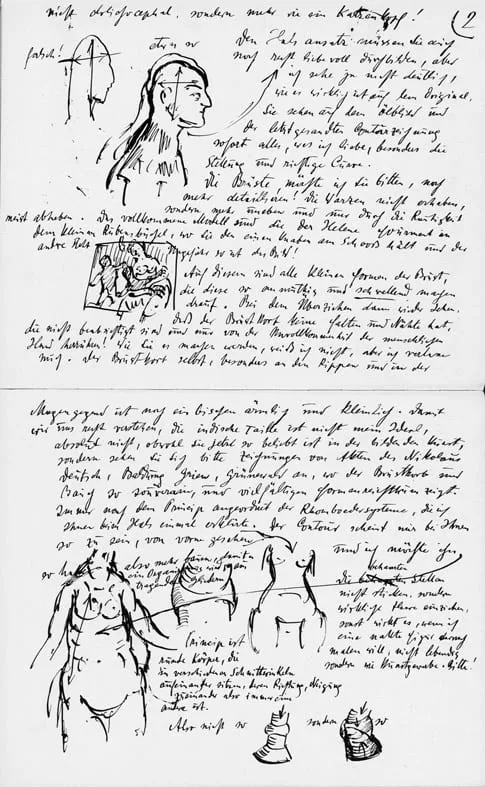 nicht dolichocephal, sondern mehr wie ein Katzenkopf!
2
falsch!
etwa so
Den Halsansatz müssen Sie auch
noch recht liebevoll durchbilden, aber
ich sehe zu nicht deutlich,
wie es wirklich ist auf dem Original.
Sie sehen auf dem Ölbild und
der letztgesandten Contourzeichnung
sofort alles, was ich liebe, besonders die
Stellung und richtige Curve.
Die Brüste, möchte ich Sie bitten, noch
mehr detaillieren! Die Warzen nicht erhoben,
sondern mehr und nur durch die Runzligkeit
meist abheben. Das vollkommene Modell sind die der Helene Fourment in
dem kleinen Rubensbüchel, wo sie den einen Knaben am Schooss hält und der
andre steht. Ungefähr so ist das Bild!
Auf diesem sind alle kleinen Formen der Brust,
die diese so anmutig und schwellend machen
drauf. Bei dem Überziehen dann wieder sehen,
daß der Brustkorb keine Falten und Nähte hat,
die nicht beabsichtigt sind und nur von der Unvollkommenheit der menschlichen
Hand herrühren! Wie Sie es machen werden, weiß ich nicht, aber ich
mich. Der Brustkorb selbst, besonders an den Rippen und in der
Magengegend ist noch ein bischen ärmlich und kleinlich. Damit
wir uns recht verstehen, die indische Taille ist nicht mein Ideal,
absolut nicht, obwohl sie jetzt so beliebt ist in der bildenden Kunst,
sondern sehen Sie sich bitte Zeichnungen von Akten des Nikolaus
Deutsch, Baldung Grien, Grünewald an, wo der Brustkorb und
Bauch so souverain, und vielfältigen Formenreichtum zeigt.
Immer nach dem Princip angeordnet der Rhomboedersysteme, die ich
Ihnen beim Hals einmal erklärte. Der Contour scheint mir bei Ihnen
so zu sein, von vorne gesehen
und ich möchte Ihn
so
also mehr damit
ein wird
Die bekannten Stellen
nicht sticken, sondern
wirkliche Haare einziehen,
sonst wirkt es, wenn ich
eine nackte Figur darnach
malen will, nicht lebendig,
sondern wie Kunstgewerbe. Bitte!
Princip ist
runde Körper, die
in verschiedenen Schnittwinkeln
aufeinander sitzen, deren Richtung, Neigung
zueinander also immer eine
andre ist.
Also nicht so
sondern so